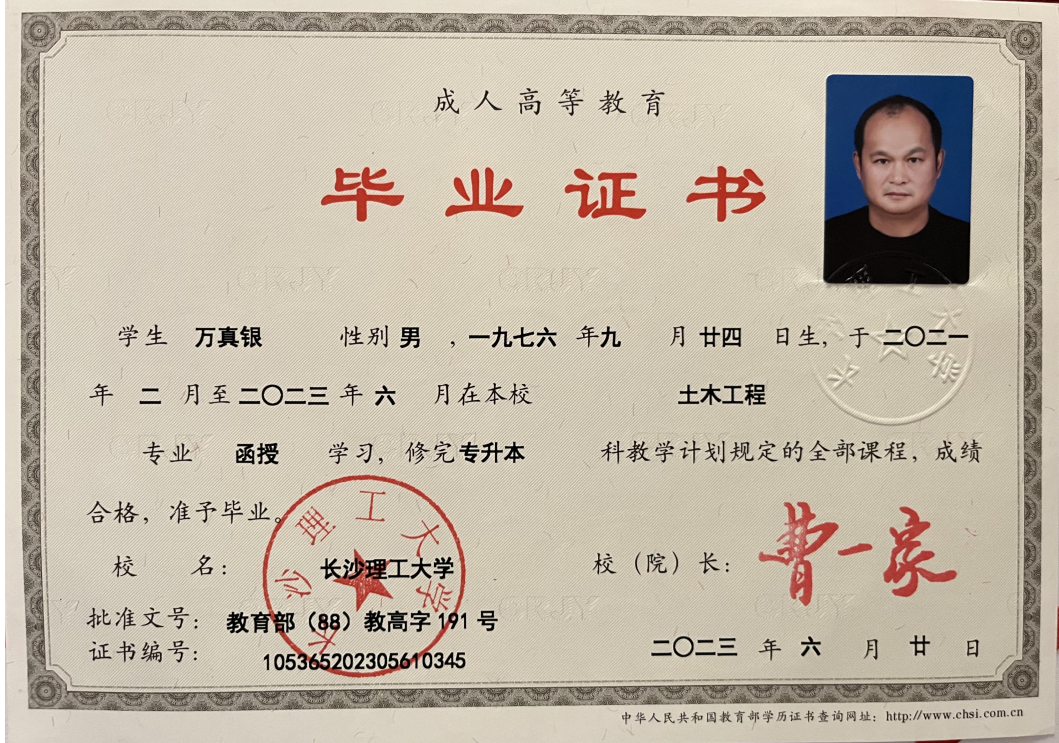 成人高等教育
毕业证书
学生 万真银 性别 男 ，一九七六 年九 月 廿四 日生，于 二〇二一
年 二 月至 二〇二三 年 六 月在本校 土木工程
专业 函授 学习，修完专升本 科教学计划规定的全部课程，成绩
合格，准予毕业。
校 名： 长沙理工大学
校（院）长： 曹一家
批准文号： 教育部（88）教高字 191 号
证书编号： 105365202305610345
二〇二三 年 六 月 廿 日
长沙理工大学
中华人民共和国教育部学历证书查询网址：http://www.chsi.com.cn